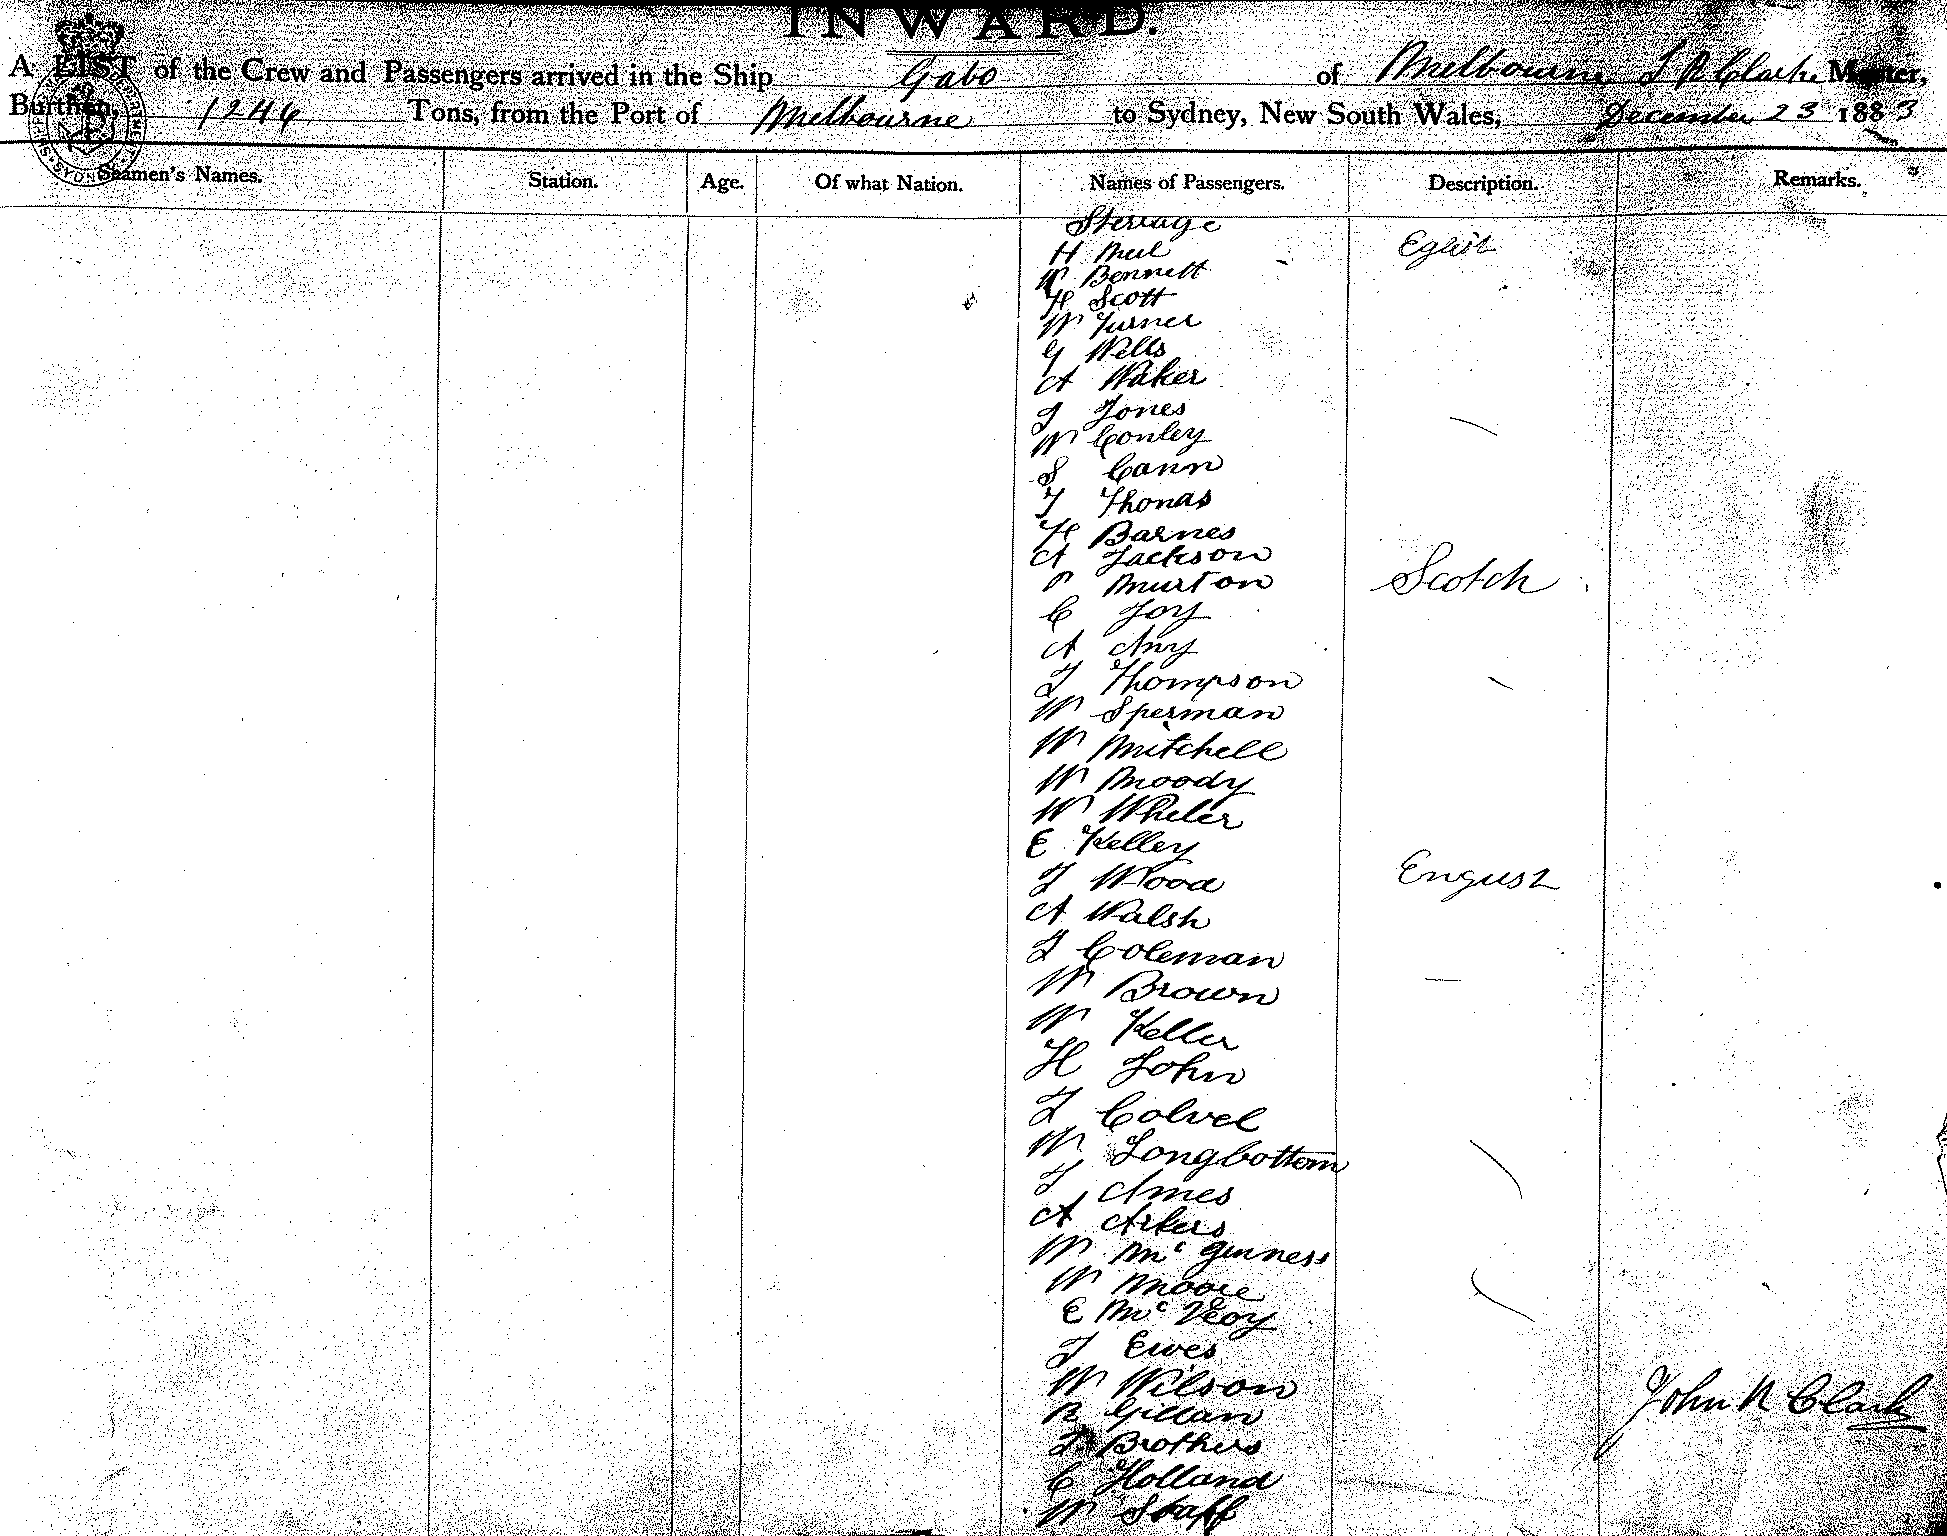 INWARD.
A LIST of the Crew and Passengers arrived in the Ship Gabo of Melbourne J R Clarke Master,
Burthen, 1246 Tons, from the Port of Melbourne to Sydney, New South Wales, December 23 1883
Seamen's Names. Station. Age. Of what Nation. Names of Passengers. Description. Remarks.
Sterrage
H Meil Eglist
W Bennett
H Scott
W Turner
G Wells
A Waker
J Jones
W Conley
S Cann
T Thonas
H Barnes
A Jackson
P Murton Scotch
C Joy
A Any
J Thompson
W Sperman
W Mitchell
W Moody
W Wheler
E Kelley
J Wood Engush
A Walsh
J Coleman
W Brown
W Keller
H John
J Colvel
W Longbottom
J Ames
A Arkers
W Mc Ginness
W Moore
E Mc Veoy
J Eives
W Wilson
R Gillan John R Clark
J Brothers
C Holland
W Staff